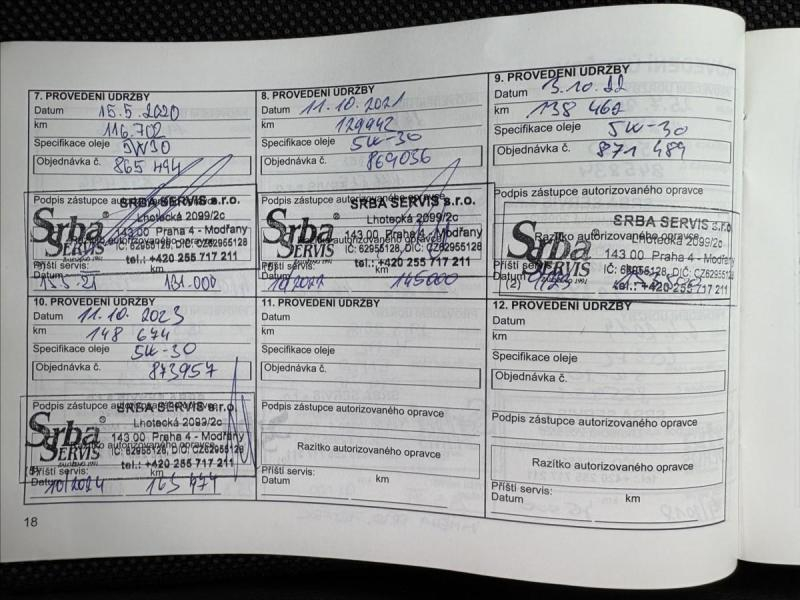 7. PROVEDENÍ ÚDRŽBY
Datum 15.5.2020
km 116.702
Specifikace oleje 5W30
Objednávka č. 865 494
Podpis zástupce autorizovaného opravce
SRBA SERVIS s.r.o.
Lhotecká 2099/2c
143 00 Praha 4 - Modřany
IČ: 62955128, DIČ: CZ62955128
tel.: +420 255 717 211
Srba SERVIS
Příští servis:
Datum 15.5.21 km 131.000
8. PROVEDENÍ ÚDRŽBY
Datum 11.10.2021
km 129942
Specifikace oleje 5W-30
Objednávka č. 869036
Podpis zástupce autorizovaného opravce
SRBA SERVIS s.r.o.
Lhotecká 2099/2c
143 00 Praha 4 - Modřany
IČ: 62955128, DIČ: CZ62955128
tel.: +420 255 717 211
Srba SERVIS
Příští servis:
Datum 10/2022 km 145000
9. PROVEDENÍ ÚDRŽBY
Datum 13.10.22
km 138 462
Specifikace oleje 5W-30
Objednávka č. 871 489
Podpis zástupce autorizovaného opravce
SRBA SERVIS s.r.o.
Razítko autorizovaného opravce
Lhotecká 2099/2c
143 00 Praha 4 - Modřany
IČ: 62955128, DIČ: CZ62955128
tel.: +420 255 717 211
Srba SERVIS
Příští servis:
Datum (2)
10. PROVEDENÍ ÚDRŽBY
Datum 11.10.2023
km 148 674
Specifikace oleje 5W-30
Objednávka č. 873957
Podpis zástupce autorizovaného opravce
SRBA SERVIS s.r.o.
Lhotecká 2099/2c
143 00 Praha 4 - Modřany
Razítko autorizovaného opravce
IČ: 62955128, DIČ: CZ62955128
tel.: +420 255 717 211
Srba SERVIS
Příští servis:
Datum 10/2024 km
11. PROVEDENÍ ÚDRŽBY
Datum
km
Specifikace oleje
Objednávka č.
Podpis zástupce autorizovaného opravce
Razítko autorizovaného opravce
Příští servis:
Datum km
12. PROVEDENÍ ÚDRŽBY
Datum
km
Specifikace oleje
Objednávka č.
Podpis zástupce autorizovaného opravce
Razítko autorizovaného opravce
Příští servis:
Datum km
18